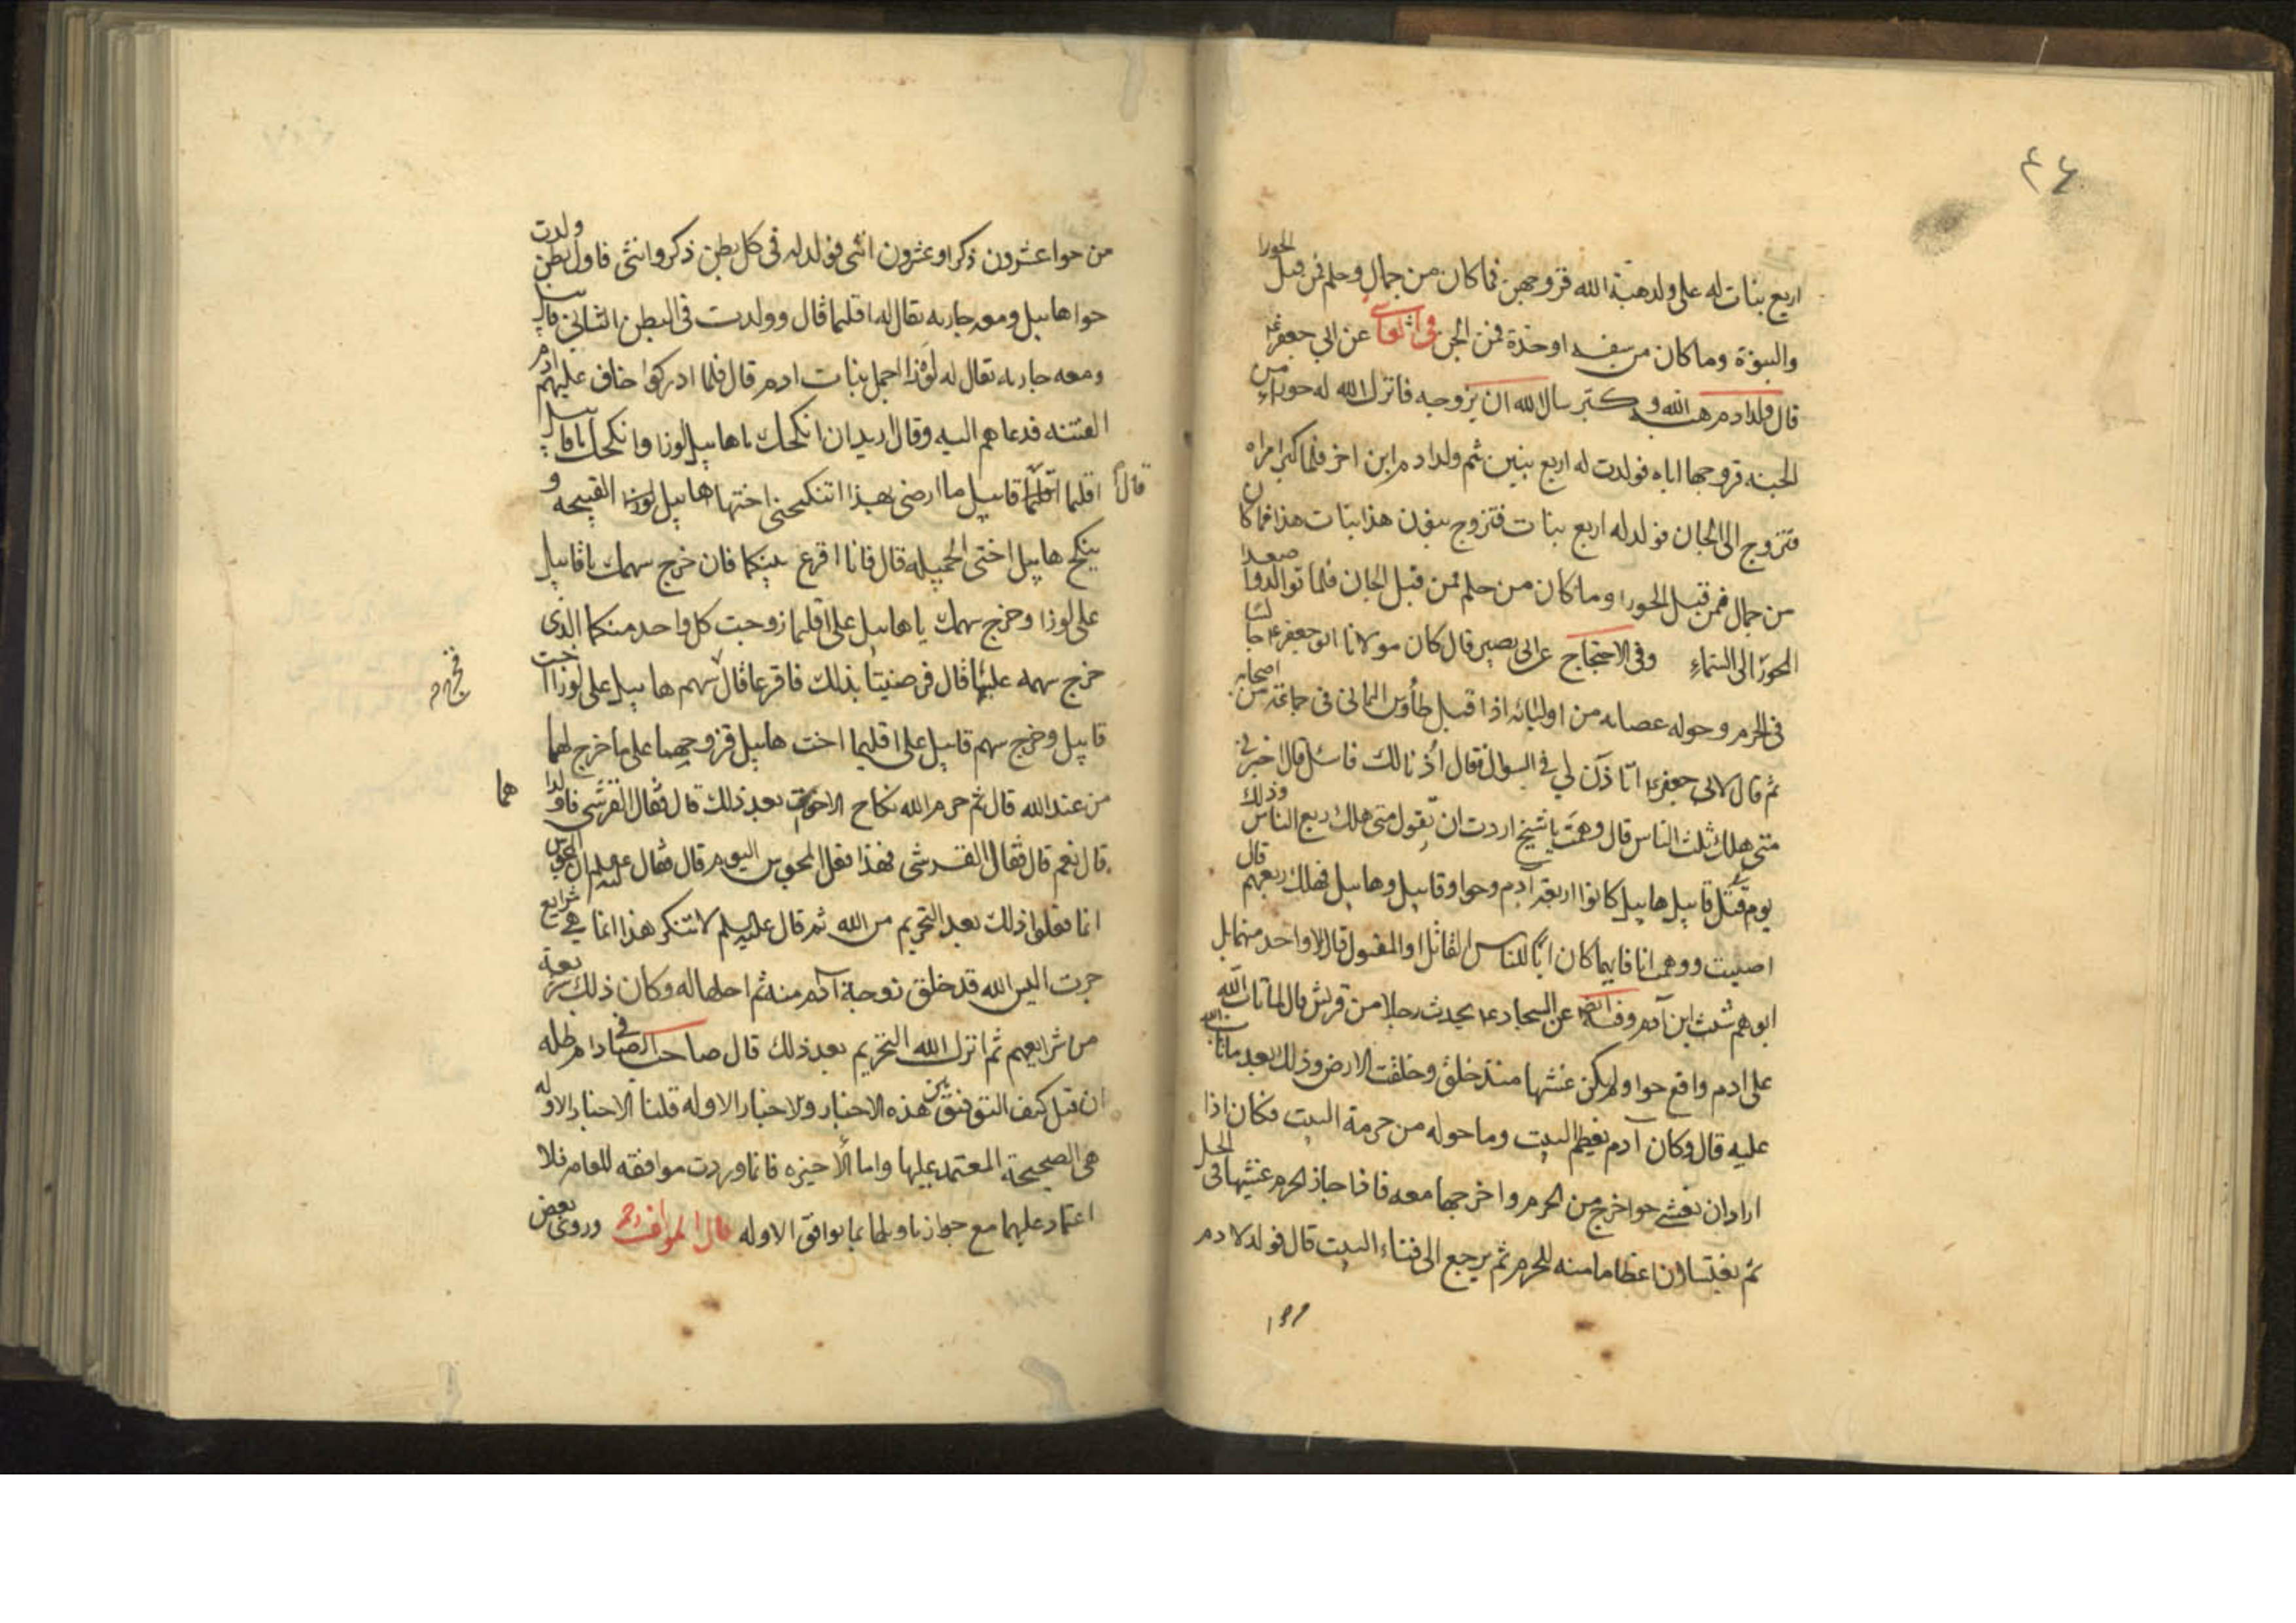 ٤٤
اربع بنات له على ولد هبة الله فزوجهن فما كان من جمال وحلم فمن قبل الحورا
والنبوة وما كان من سفه او حدة فمن الجن وفي عن ابي جعفر ع
قال ولد ادم هبة الله وكبر سال الله ان يزوجه فانزل الله له حوراء من
الجنه فزوجها اياه فولدت له اربع بنين ثم ولد ادم ابن اخر فلما كبر امراه
فتزوج الى الجان فولد له اربع بنات فتزوج بنون هذا بنات هذا فما كان
من جمال فمن قبل الحورا وما كان من حلم فمن قبل الجان فلما توالدوا صعد
الحورا الى السماء وفي الاحتجاج عن ابي بصير قال كان مولانا ابو جعفر ع جالسا
في الحرم وحوله عصابه من اوليائه اذا قبل طاوس اليماني في جماعة من اصحابه
ثم قال لابي جعفر ع اتاذن لي في السوال فقال اذنا لك فاسئل قال اخبرني
متى هلك ثلث الناس قال وهمت يا شيخ اردت ان تقول متى هلك ربع الناس وذلك
يوم قتل قابيل هابيل كانوا اربعة آدم وحوا وقابيل وهابيل فهلك ربعهم قال
اصبت ووهمت انا فايهما كان ابا للناس القاتل او المقتول قال لا واحد منهما بل
ابوهم شيث ابن آدم وفيه ايضا عن السجاد ع يحدث رجلا من قريش قال لما تاب الله
على ادم واقع حوا ولم يكن غشيها منذ خلق وخلقت الا في الارض وذلك بعد ما تاب الله
عليه قال وكان آدم يعظم البيت وما حوله من حرمة البيت فكان اذا
اراد ان يغشى حوا خرج من الحرم واخرجها معه فاذا جاز الحرم غشيها في الحل
ثم يغتسلان اعظاما منه للحرم ثم يرجع الى فناء البيت قال فولد لادم
من حوا عشرون ذكرا وعشرون انثى فولد له في كل بطن ذكر وانثى فاول بطن ولدت
حوا هابيل ومعه جاريه يقال له اقليما قال وولدت في البطن الثاني قابيل
ومعه جاريه يقال له لوزا اجمل بنات ادم قال فلما ادركوا خاف عليهم ادم
الفتنه فدعاهم اليه وقال اريد ان انكحك يا هابيل لوزا وانكحك يا قابيل
اقليما قال قابيل ما ارضى بهذا اتنكحني اختها هابيل القبيحه و
ينكح هابيل اختي الجميله قال فانا اقرع بينكما فان خرج سهمك يا قابيل
على لوزا وخرج سهمك يا هابيل على اقليما زوجت كل واحد منكما الذي
خرج سهمه عليها قال فرضيتا بذلك فاقرعا قال سهم هابيل على لوزا اخت
فخرج
قابيل وخرج سهم قابيل على اقليما اخت هابيل فزوجهما على ما خرج لهما
من عند الله قال ثم حرم الله نكاح الاخوات بعد ذلك قال فقال القرشي فاولدا
هما
قال نعم قال فقال القرشي فهذا فعل المجوس اليوم قال فقال عليه السلم ان المجوس
انما فعلوا ذلك بعد التحريم من الله ثم قال عليه السلم لا تنكر هذا انما هي شرايع
جرت اليس الله قد خلق زوجة آدم منه ثم احلها له وكان ذلك شريعة
من شرايعهم ثم انزل الله التحريم بعد ذلك قال صاحب الصافي دام ظله
ان قيل كيف التوفيق بين هذه الاخبار والاخبار الاوله قلنا الاخبار الاوله
هي الصحيحة المعتمد عليها واما الأخيره فانما وردت موافقه للعامه فلا
اعتماد عليها مع جواز تاويلها بما يوافق الاوله قال المولف ره وروى بعض